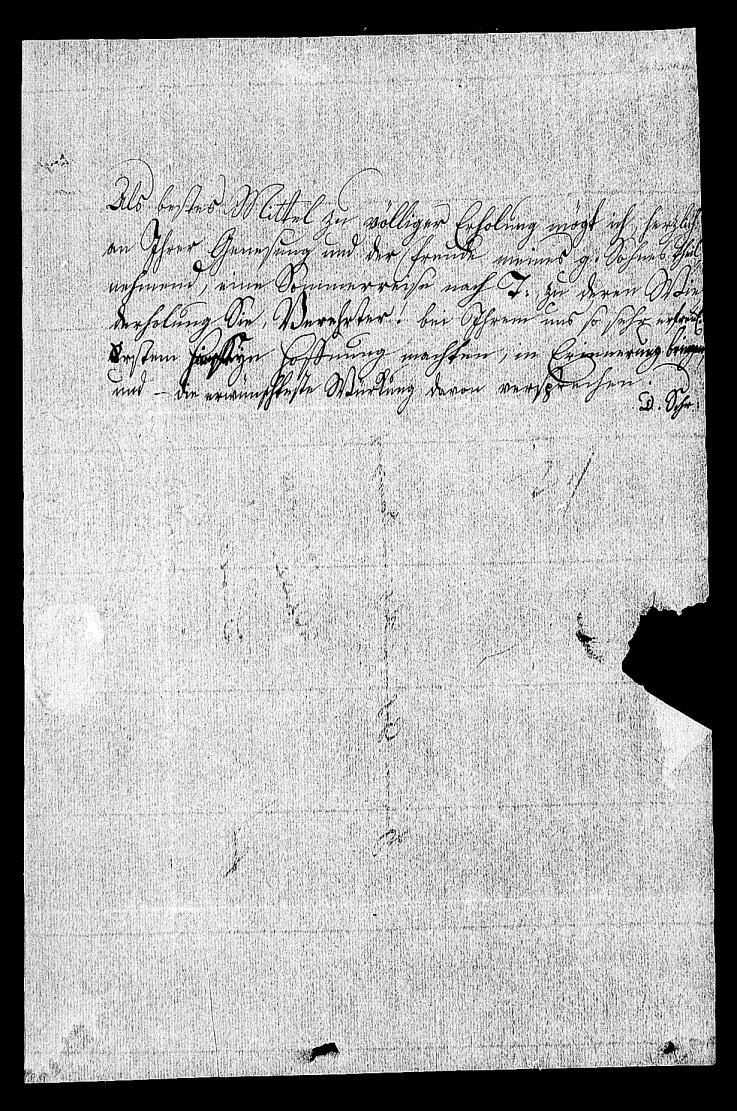 Als bestes Mittel zu völliger Erholung mögt ich, herzlich
an Ihrer Genesung und der Freude meines g. Sohnes theil
nehmend, eine Sommerreise nach T. zu deren Wie
derholung Sie, Verehrter! bei Ihrem uns so sehr erfreul.
Erstem Hoffnung machten, in Erinnerung bringen
und – die erwünschteste Würkung davon versprechen.
D. Schr.